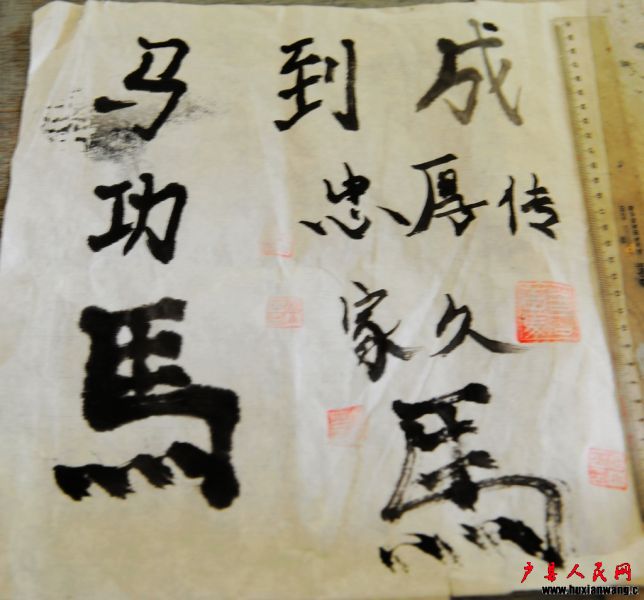 马到成
功忠厚传
家久
馬馬
户县人民网
www.huxianwang.c